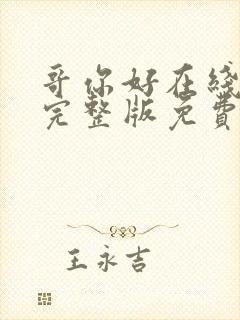 哥你好在线
完整版免費
王永吉